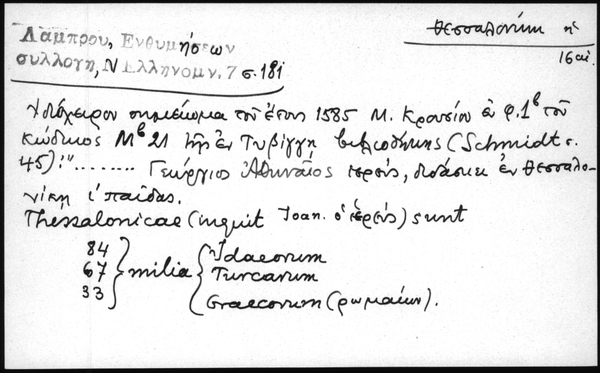 Θεσσαλονίκη
16 αἰ.
Λάμπρου, Ἐνθυμήσεων
συλλογή, Ν Ἑλληνομν. 7 σ. 181
Ἰδιόχειρον σημείωμα τοῦ ἔτους 1585 Μ. Κρουσίου ἐν φ. 1β τοῦ
κώδικος Μβ 21 τῆς ἐν Τυβίγγῃ βιβλιοθήκης (Schmidt σ.
45): "........ Γεώργιος Ἀθηναῖος ἱερεύς, διδάσκει ἐν Θεσσαλο-
νίκῃ παῖδας.
Thessalonicae (inquit Joan. ὁ ἱερεύς) sunt
84
67
33
milia
Judaeorum
Turcarum
Graecorum (ρωμαίων).